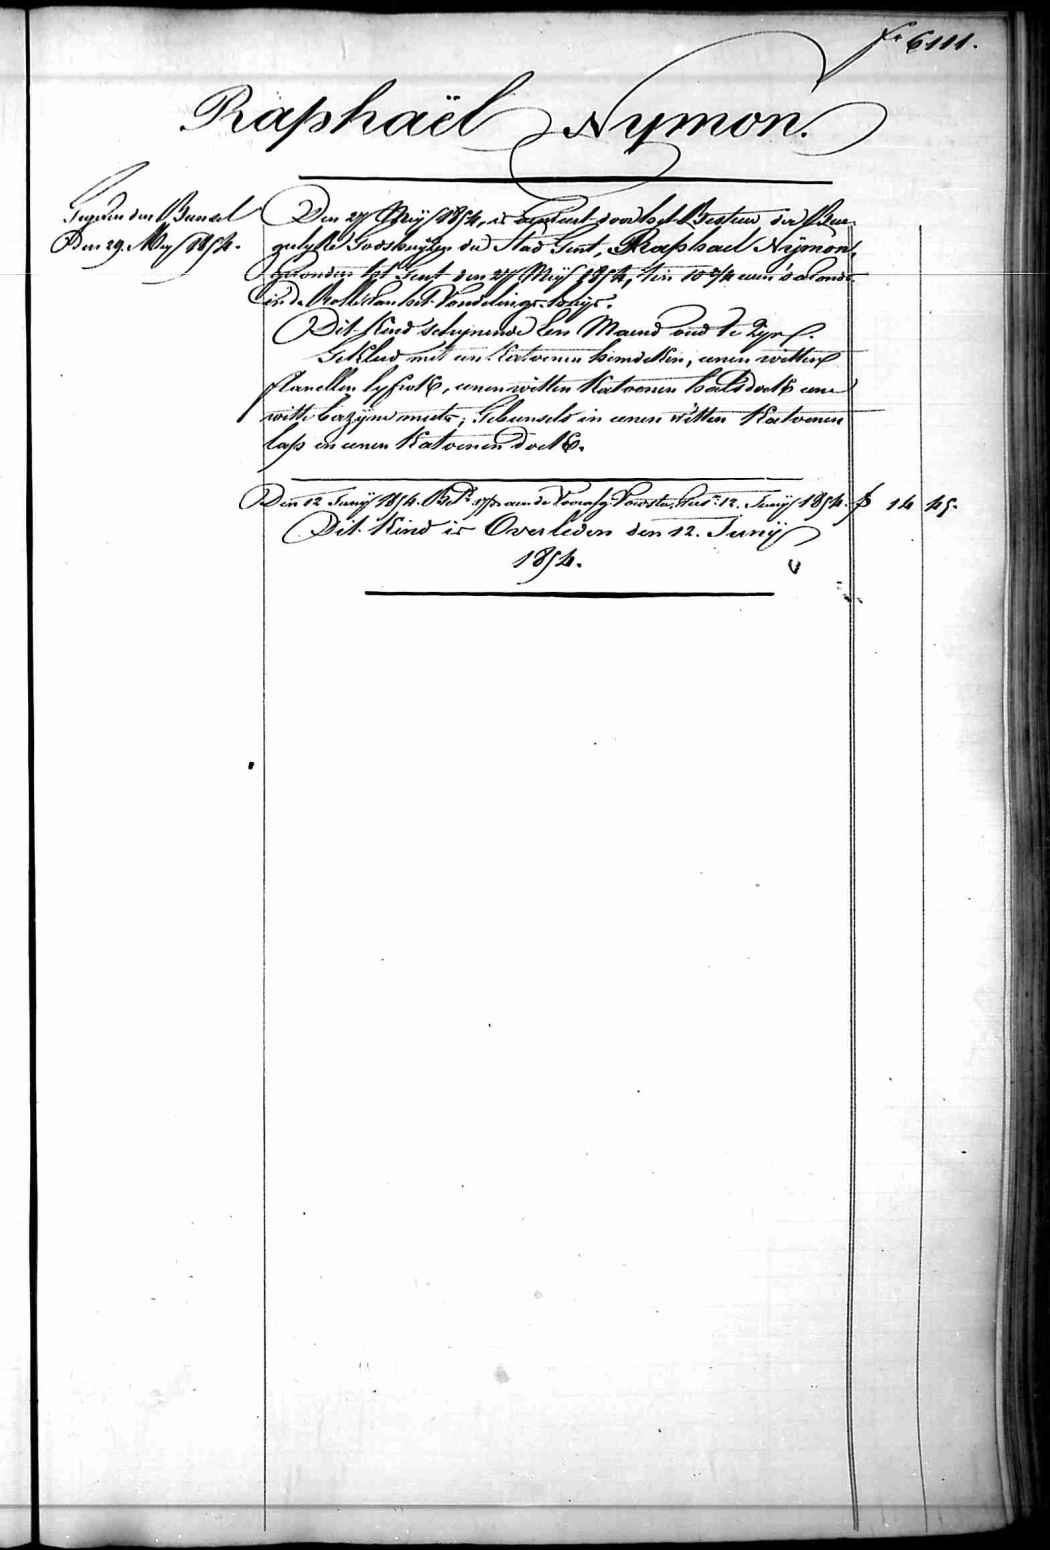 fo 6111.
Raphaël Nymon.
Den 29 Mey 1854.
Den 27 Meij 1854, is door het Bestuer der Bur-
gelyke Godshuyzen der Stad Gent, Raphael Nymon,
gevonden tot Gent den 27 Meij 1854, ten 10 3/4 uren 's avonds
in de Rolle van het Vondelings-huys.
Dit Kind schynende Een Maend oud te Zyn.
Gekleed met een Katoenen hemdeken, eenen witten
flanellen lyfrok, eenen witten Katoenen halsdoek eene
witte bazyne muts; Gebunseld in eenen witten Katoenen
lap en eenen Katoenen doek.
Den 12 Junij 1854. aen de 12. Junij 1854. f 14 45.
Dit Kind is Overleden den 12. Junij
1854.